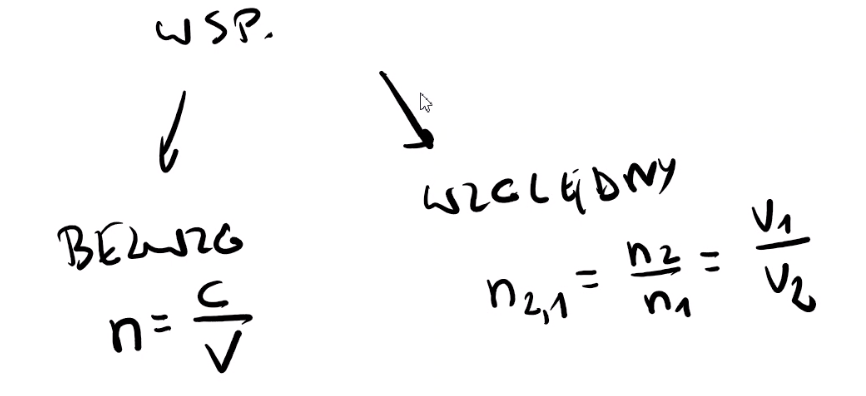 WSP.
BEZWZG
n = c/v
WZGLĘDNY
n2,1 = n2/n1 = v1/v2